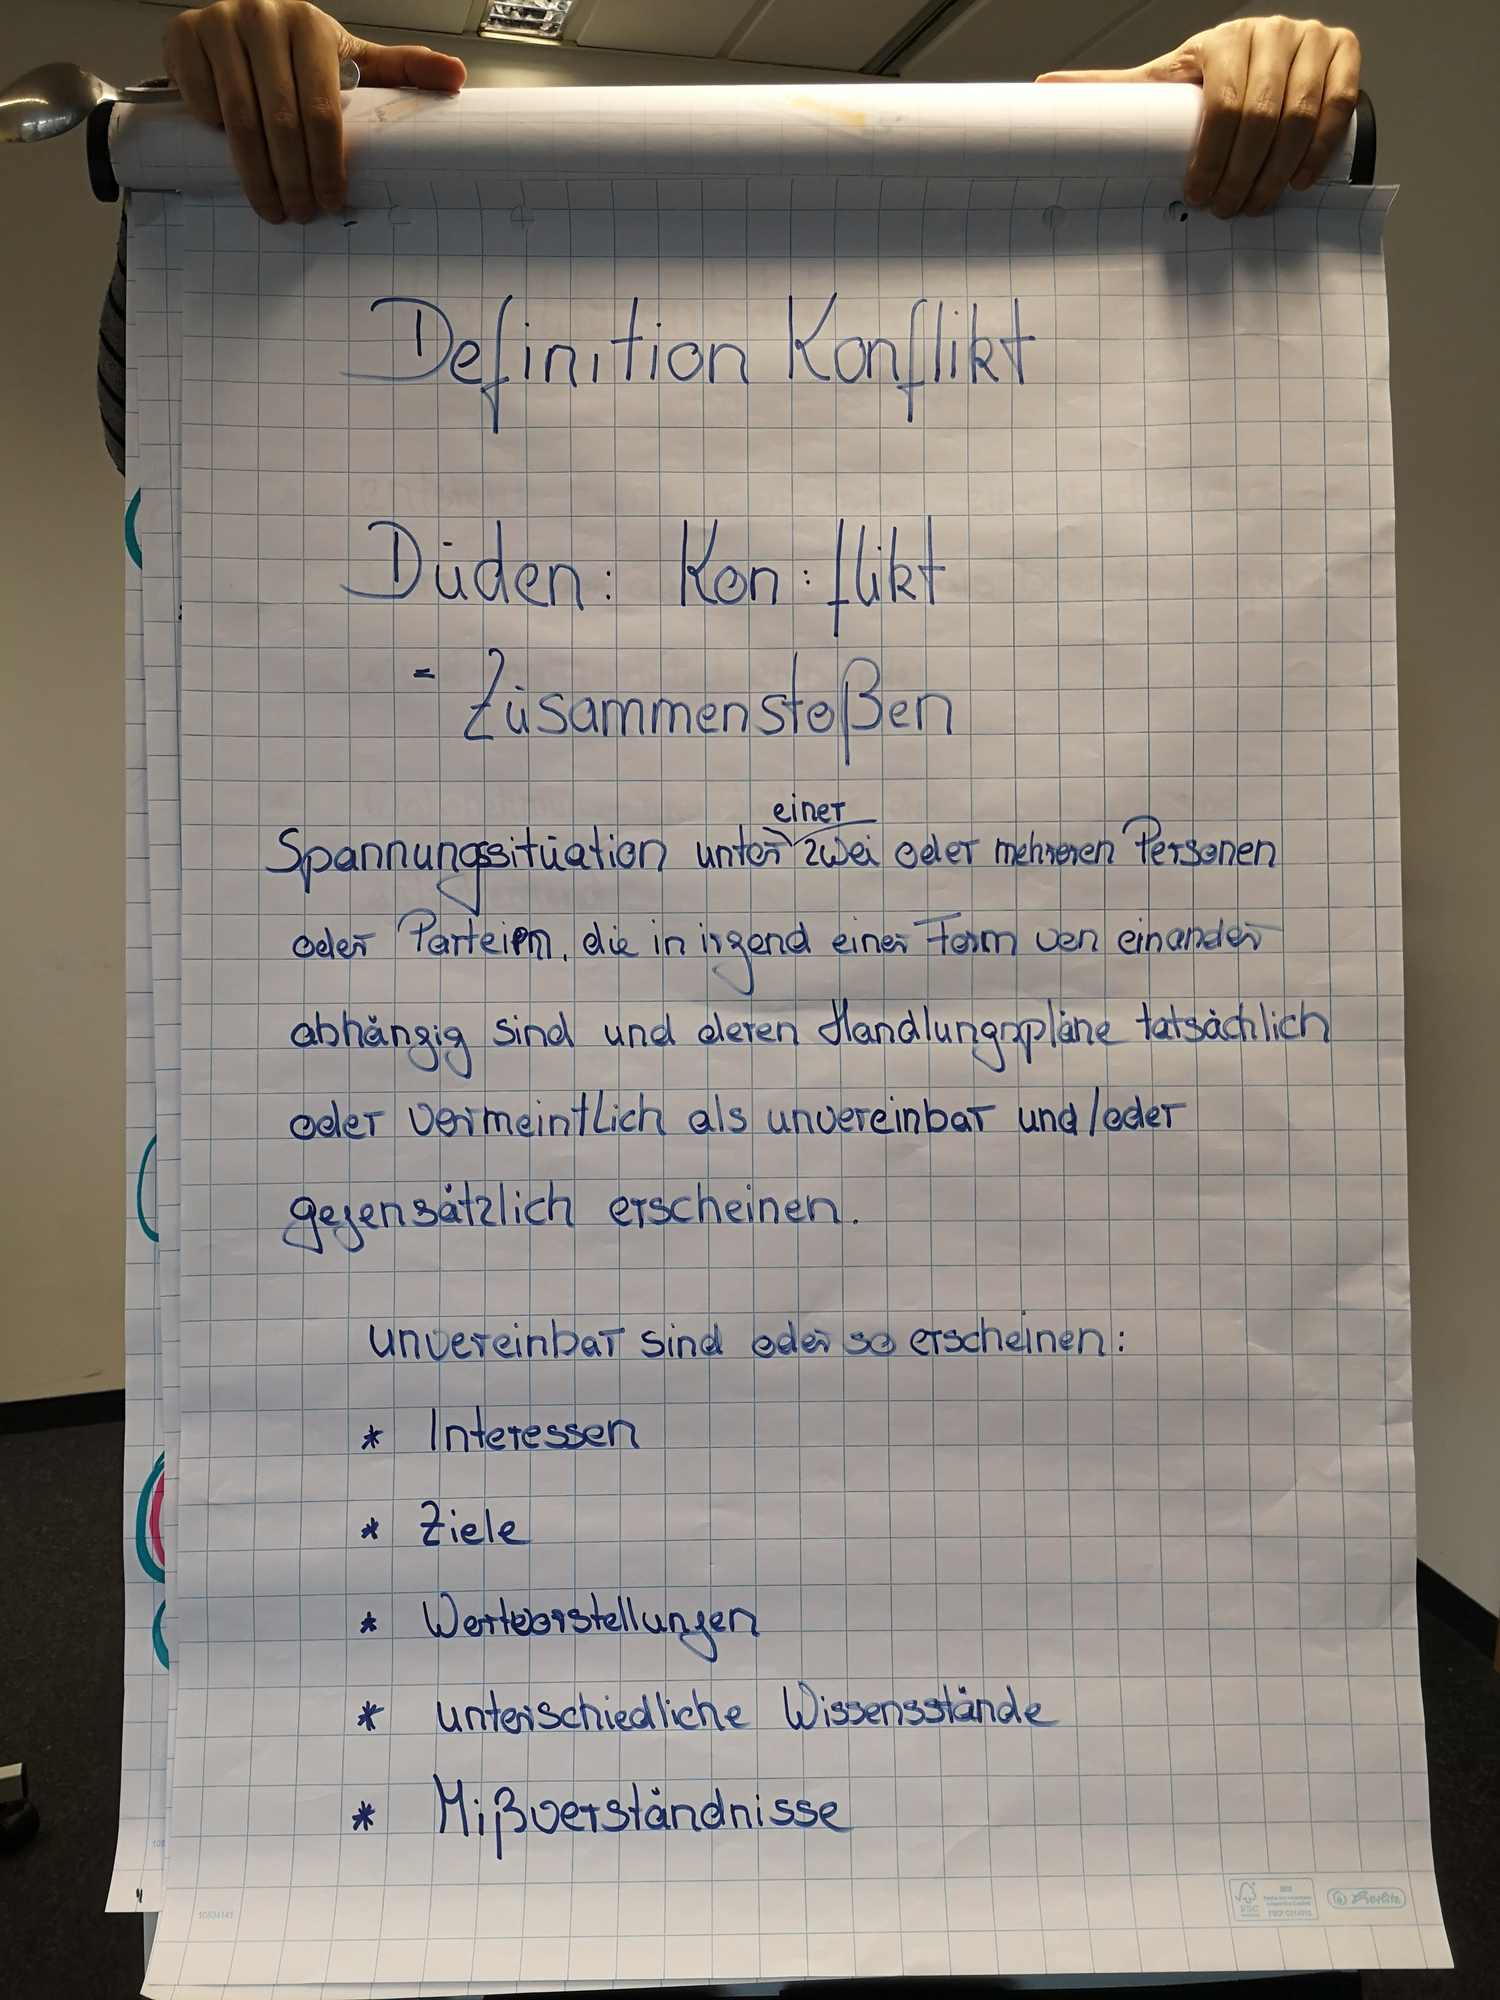 Definition Konflikt
Düden: Kon:flikt
= Züsammenstoßen
einer
Spannungssitüation unter zwei oder mehreren Personen
oder Parteien, die in irgend einer Form von einander
abhängig sind und deren Handlungspläne tatsächlich
oder vermeintlich als unvereinbar und/oder
gegensätzlich erscheinen.
unvereinbar sind oder so erscheinen:
* Interessen
* Ziele
* Wertvorstellungen
* unterschiedliche Wissensstände
* Mißverständnisse
10834141
FSC
MIX
Herlitz